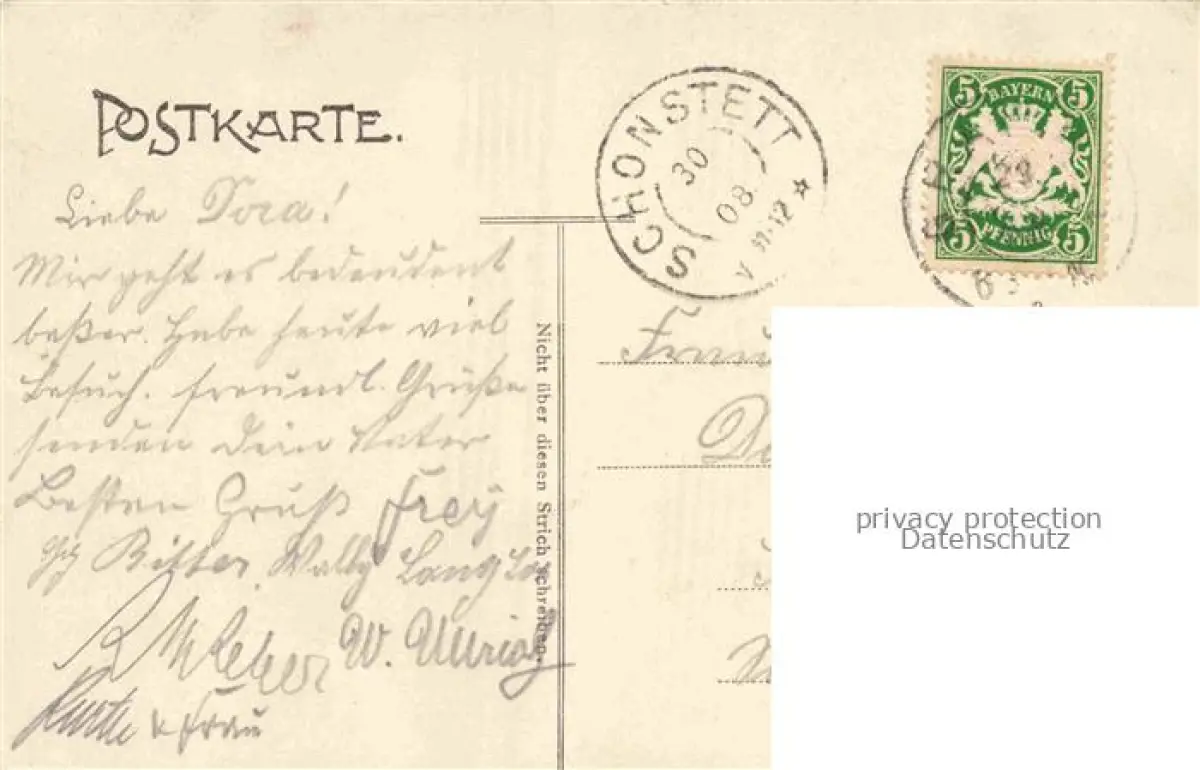 POSTKARTE.
SCHONSTETT
30
08
V 11-12
5 BAYERN 5
5 PFENNIG 5
Liebe Dora!
Mir geht es bedeudent
beßer. Habe heute viel
Besuch. freundl. Grüße
senden Dein Vater
Besten Gruß Frey
Ritter, Wally Lang
W. Ullrich
& Frau
Nicht über diesen Strich schreiben.
Frau
privacy protection
Datenschutz